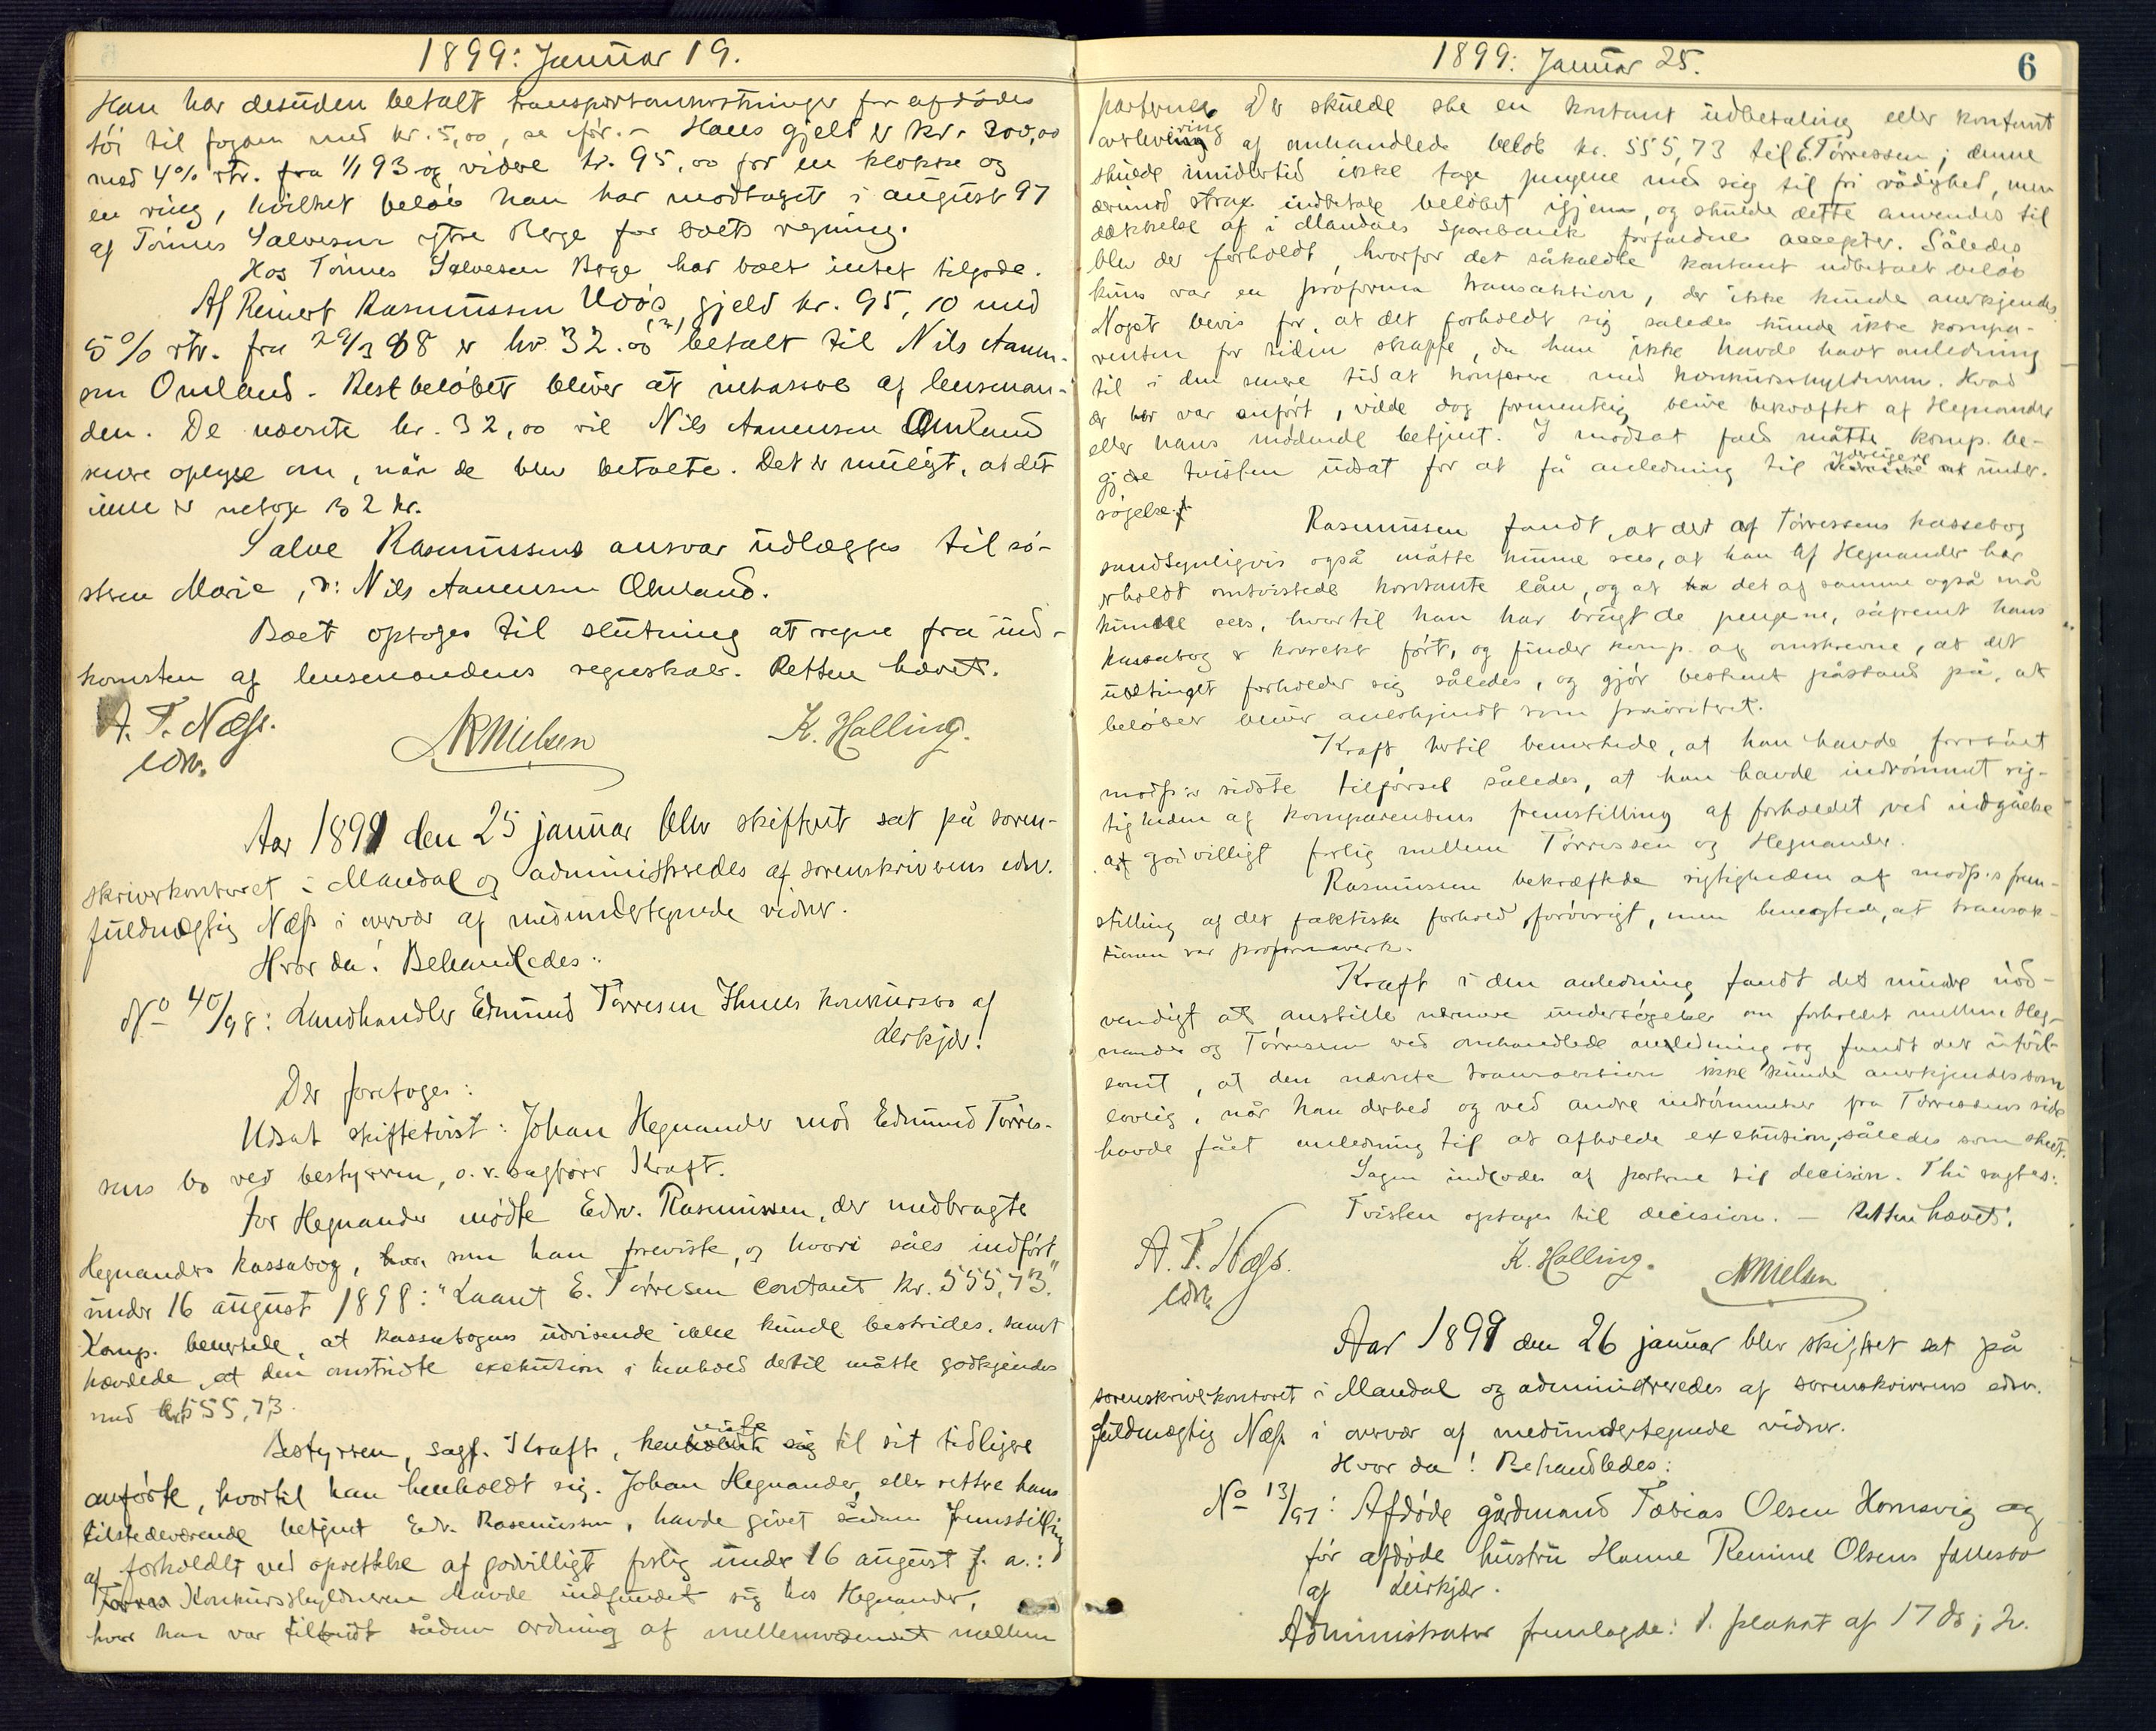 1899: Januar 19.
Han har desuden betalt transportomkostninger for afdødes
tøi til fogden med kr. 5,00, se før. - Hans gjeld er kr. 200,00
med 4% rtr. fra 1/1 93 og videre kr. 95,00 for en klokke og
en ring, hvilket beløb han har modtaget i august 97
af Tønnes Salvesen Ytre Berge for boets regning.
Hos Tønnes Salvesen Berge har boet intet tilgode.
Af Reinert Rasmussen Udøs gjeld kr. 95,10 med
5% rtr. fra 29/3 88 er kr. 32.00 (?) betalt til Nils Aanen-
sen Omland. Restbeløbet bliver at inkassere af lensman-
den. De nævnte kr. 32,00 vil Nils Aanensen Omland
senere oplyse om, når de blev betalte. Det er muligt, at det
ikke er netop 32 kr.
Salve Rasmussens ansvar udlægges til sø-
steren Marie, ɔ: Nils Aanensen Omland.
Boet optoges til slutning at regne fra ind-
komsten af lensmandens regnskab. Retten hævet.
A. T. Næss.
edsv.
NNielsen
K. Halling.
Aar 1899 den 25 januar blev skifteret sat på soren-
skriverkontoret i Mandal og administreredes af sorenskriverens edsv.
fuldmægtig Næss i overvær af medundertegnede vidner.
Hvor da! Behandledes:
No 40/98: Landhandler Edmund Tørresen Ihmes konkursbo af
Lerkjær!
Der foretoges:
Udsat skiftetvist: Johan Hegnander mod Edmund Tørres-
sens bo ved bestyreren, o.r.sagfører Kraft.
For Hegnander mødte Edv. Rasmussen, der medbragte
Hegnanders kassabog, som han foreviste, og hvori såes indført
under 16 august 1898: "Laant E. Tørresen contant kr. 555,73."
Komp. bemerkede, at kassabogens udvisende ikke kunde bestrides, samt
hævdede, at den omstridte exekution i henhold dertil måtte godkjendes
med kr. 555,73.
Bestyreren, sagf. Kraft, henviste til sit tidligere
anførte, hvortil han henholdt sig. Johan Hegnander, eller rettere hans
tilstedeværende betjent Edv. Rasmussen, havde givet sådan fremstilling
af forholdet ved oprettelse af godvilligt forlig under 16 august f. a.:
Konkursskyldneren havde indfundet sig hos Hegnander,
hvor han var tilbudt sådan ordning af mellemværendet mellem
1899: Januar 25.
6
parterne. Der skulde ske en kontant udbetaling eller kontant
overlevering af omhandlede beløb kr. 555,73 til E. Tørressen; denne
skulde imidlertid ikke tage pengene med sig til fri rådighed, men
derimod strax indbetale beløbet igjen, og skulde dette anvendes til
dækkelse af i Mandals Sparebank forfaldne accepter. Således
blev der forholdt, hvorfor det såkaldte kontant udbetalt beløb
kuns var en proforma transaktion, der ikke kunde anerkjendes.
Noget bevis for, at det forholdt sig saledes kunde ikke kompa-
renten for tiden skaffe, da han ikke havde havt anledning
til i den senere tid at konferere med konkursskyldneren. Hvad
der her var anført, vilde dog formentlig blive bekræftet af Hegnander
eller hans mødende betjent. I modsat fald måtte komp. be-
gjære tvisten udsat for at få anledning til yderligere under-
søgelse.
Rasmussen fandt, at det af Tørressens kassabog
sandsynligvis også måtte kunne sees, at han af Hegnander har
erholdt omtvistede kontante lån, og at det af samme også må
kunne sees, hvortil han har brugt de pengene, såfremt hans
kassabog er korrekt ført, og finder komp. af omskrevne, at det
forholder sig således, og gjør bestemt påstand på, at
beløbet bliver anerkjendt som prioriteret.
Kraft hertil bemerkede, at han havde forstået
modp:s sidste tilførsel således, at han havde indrømmet rig-
tigheden af komparentens fremstilling af forholdet ved indgåelse
af godvilligt forlig mellem Tørressen og Hegnander.
Rasmussen bekræftede rigtigheden af modp.s frem-
stilling af det faktiske forhold forøvrigt, men benegtede, at transak-
tionen var proformaverk.
Kraft i den anledning fandt det mindre nød-
vendigt at anstille nærmere undersøgelser om forholdet mellem Heg-
nander og Tørressen ved omhandlede anledning og fandt det utvil-
somt, at den nævnte transaktion ikke kunde anerkjendes som
lovlig, når han derhed og ved andre indrømmelser fra Tørressens side
havde fået anledning til at afholde exekution, således som skeet.
Sagen indlodes af parterne til decision. Thi sagdes:
Tvisten optages til decision. - Retten hævet.
A. T. Næss.
edsv.
K. Halling.
NNielsen
Aar 1899 den 26 januar blev skifteret sat på
sorenskriverkontoret i Mandal og administreredes af sorenskriverens edsv.
fuldmægtig Næss i overvær af medundertegnede vidner.
Hvor da! Behandledes:
No 13/97: Afdøde gårdmand Tobias Olsen Homsvig og
før afdøde hustru Hanne Remine Olsens fællesbo
af Leirkjær.
Administrator fremlagde: 1. plakat af 17 ds; 2.